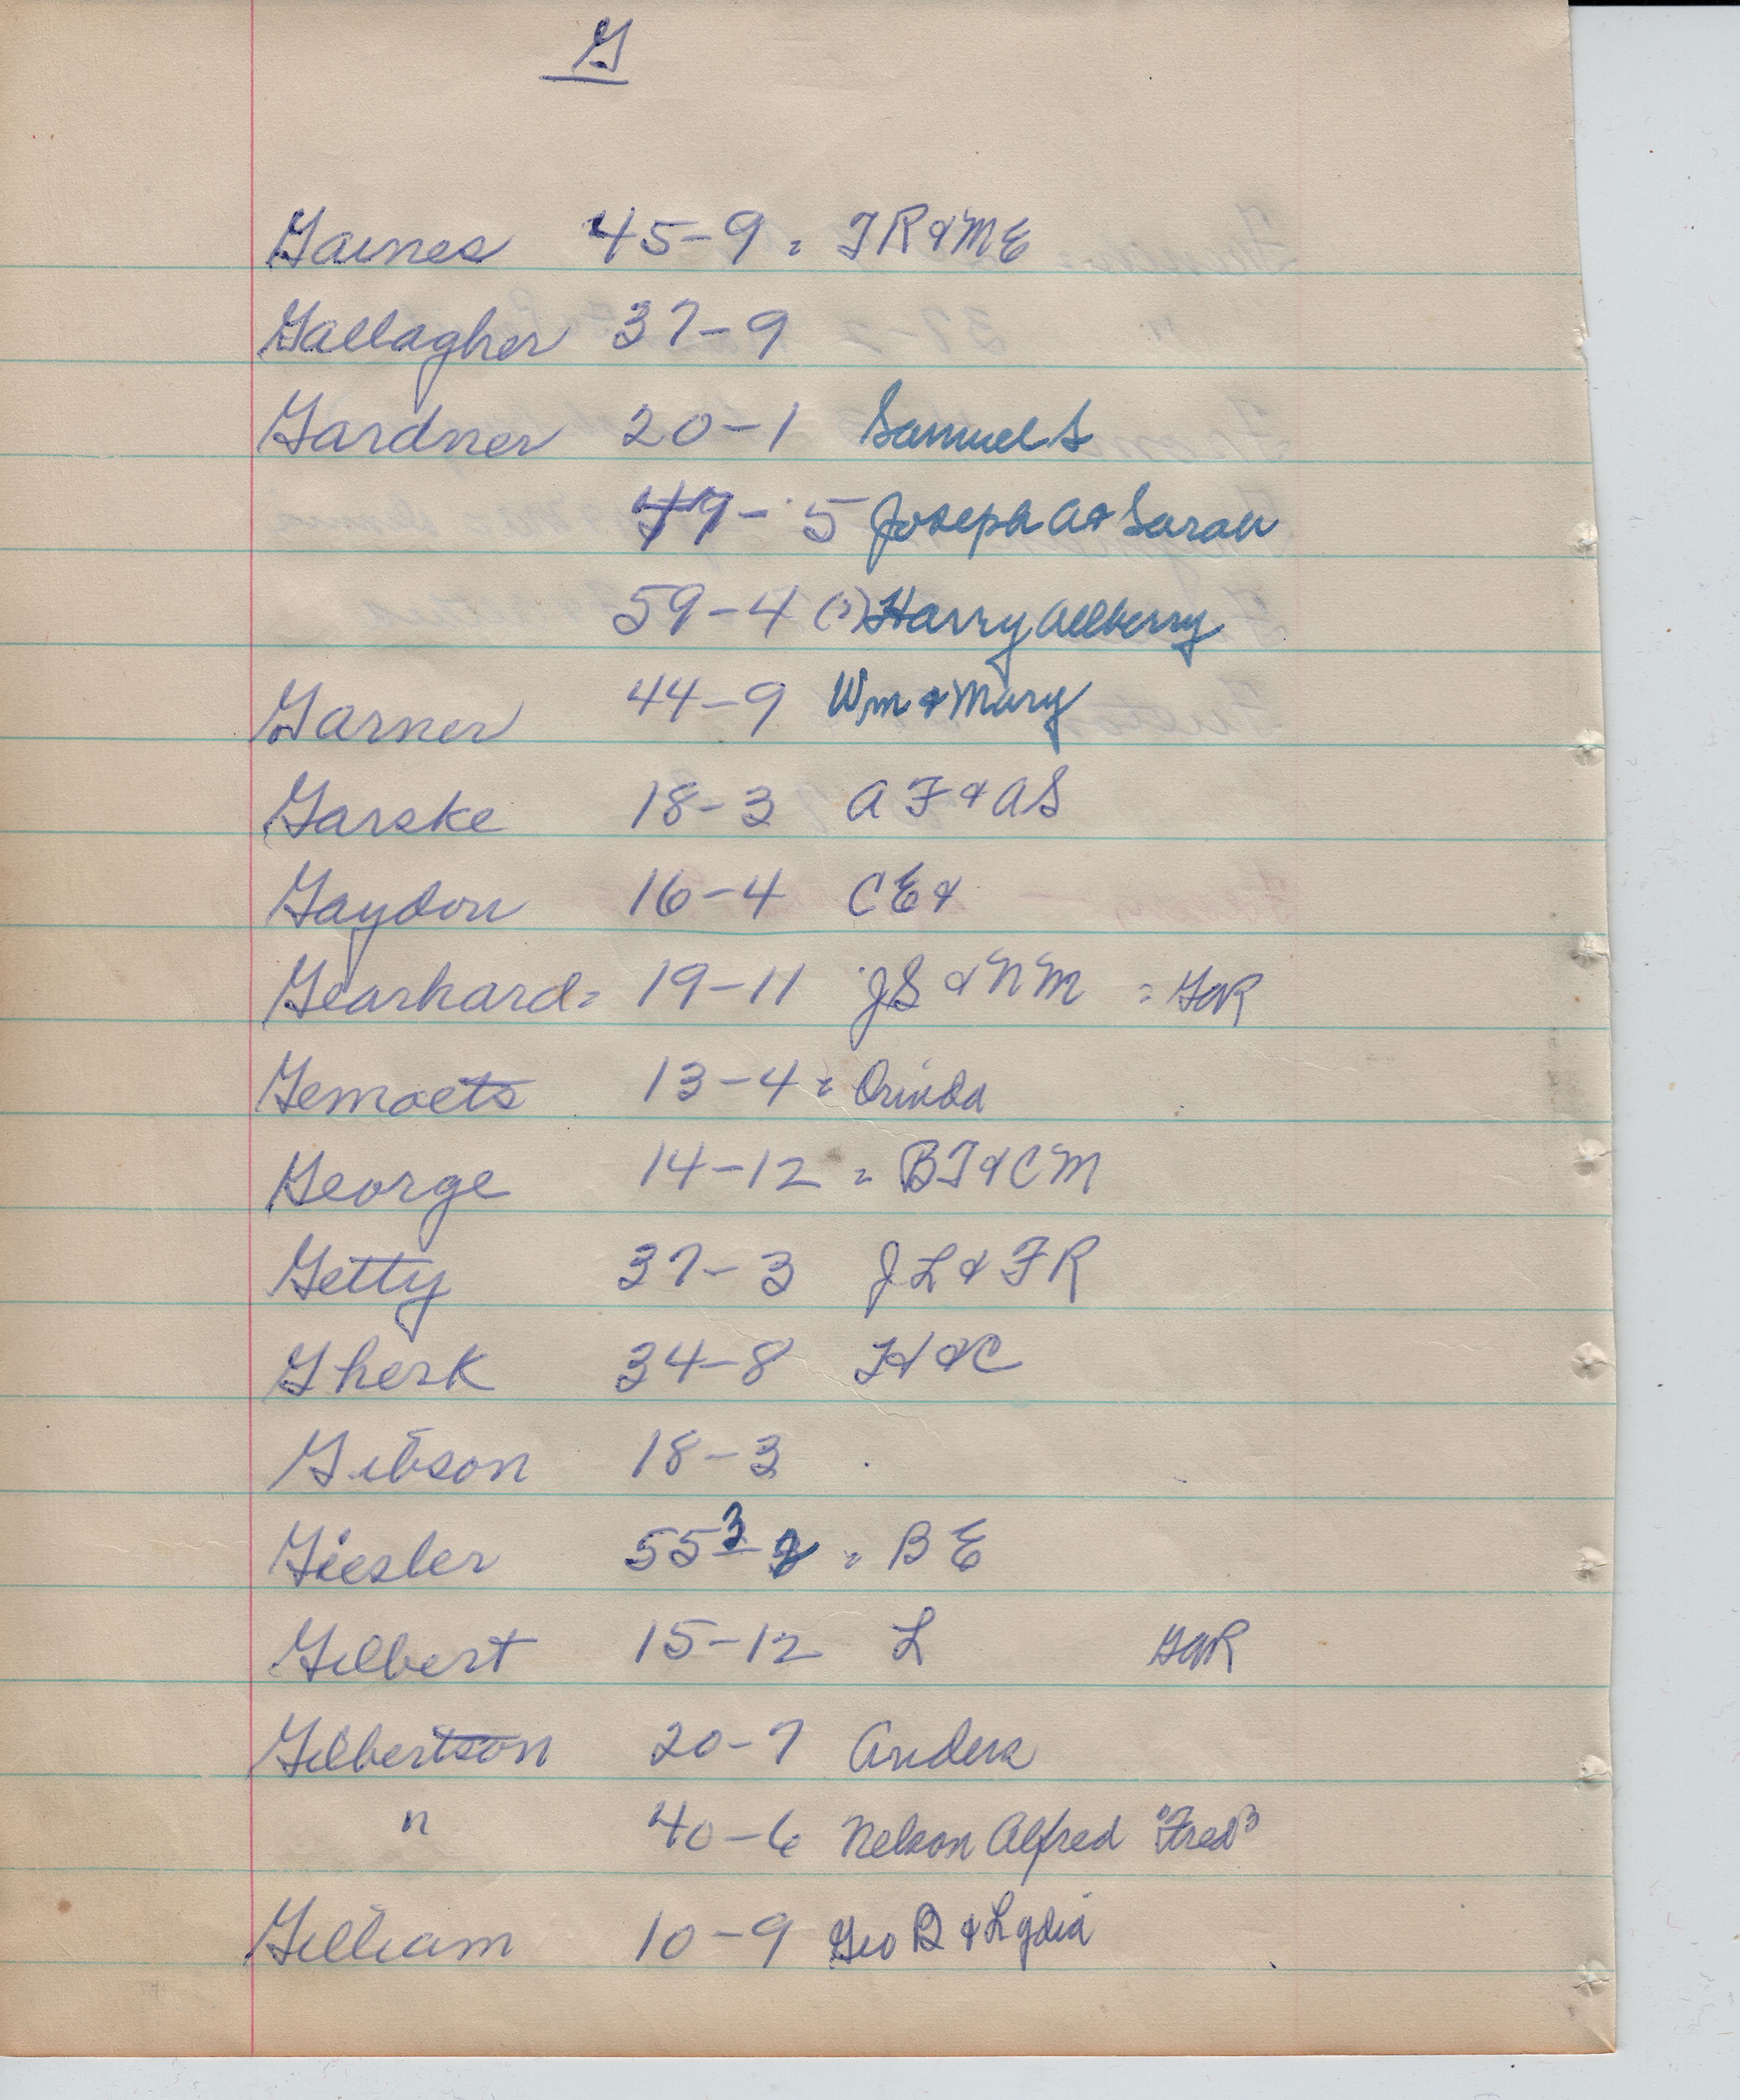 G
Gaines 45-9 = TR & ME
Gallagher 37-9
Gardner 20-1 Samuel S
49-5 Joseph A & Sarah
59-4 (?) Harry Allberry
Garner 44-9 Wm & Mary
Garske 18-3 AF & AS
Gaydon 16-4 CE &
Gearhard = 19-11 JS & NM = GAR
Gemaets 13-4 = Orinda
George 14-12 = BT & CM
Getty 37-3 JL & FR
Gherk 34-8 H & C
Gibson 18-3
Giesler 55 3-2 = BE
Gilbert 15-12 L GAR
Gilbertson 20-7 Anders
" 40-6 Nelson Alfred "Fred"
Gilliam 10-9 Geo B & Lydia